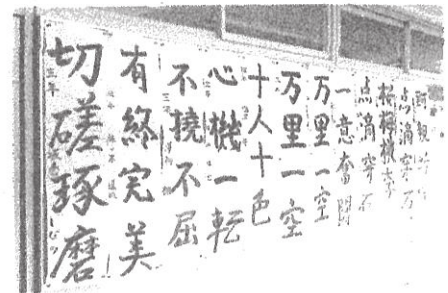 切磋琢磨
有終完美
不撓不屈
心機一転
十人十色
万里一空
万里一空
一意奮闘
点滴穿石
桜梅桃李
点滴穿石